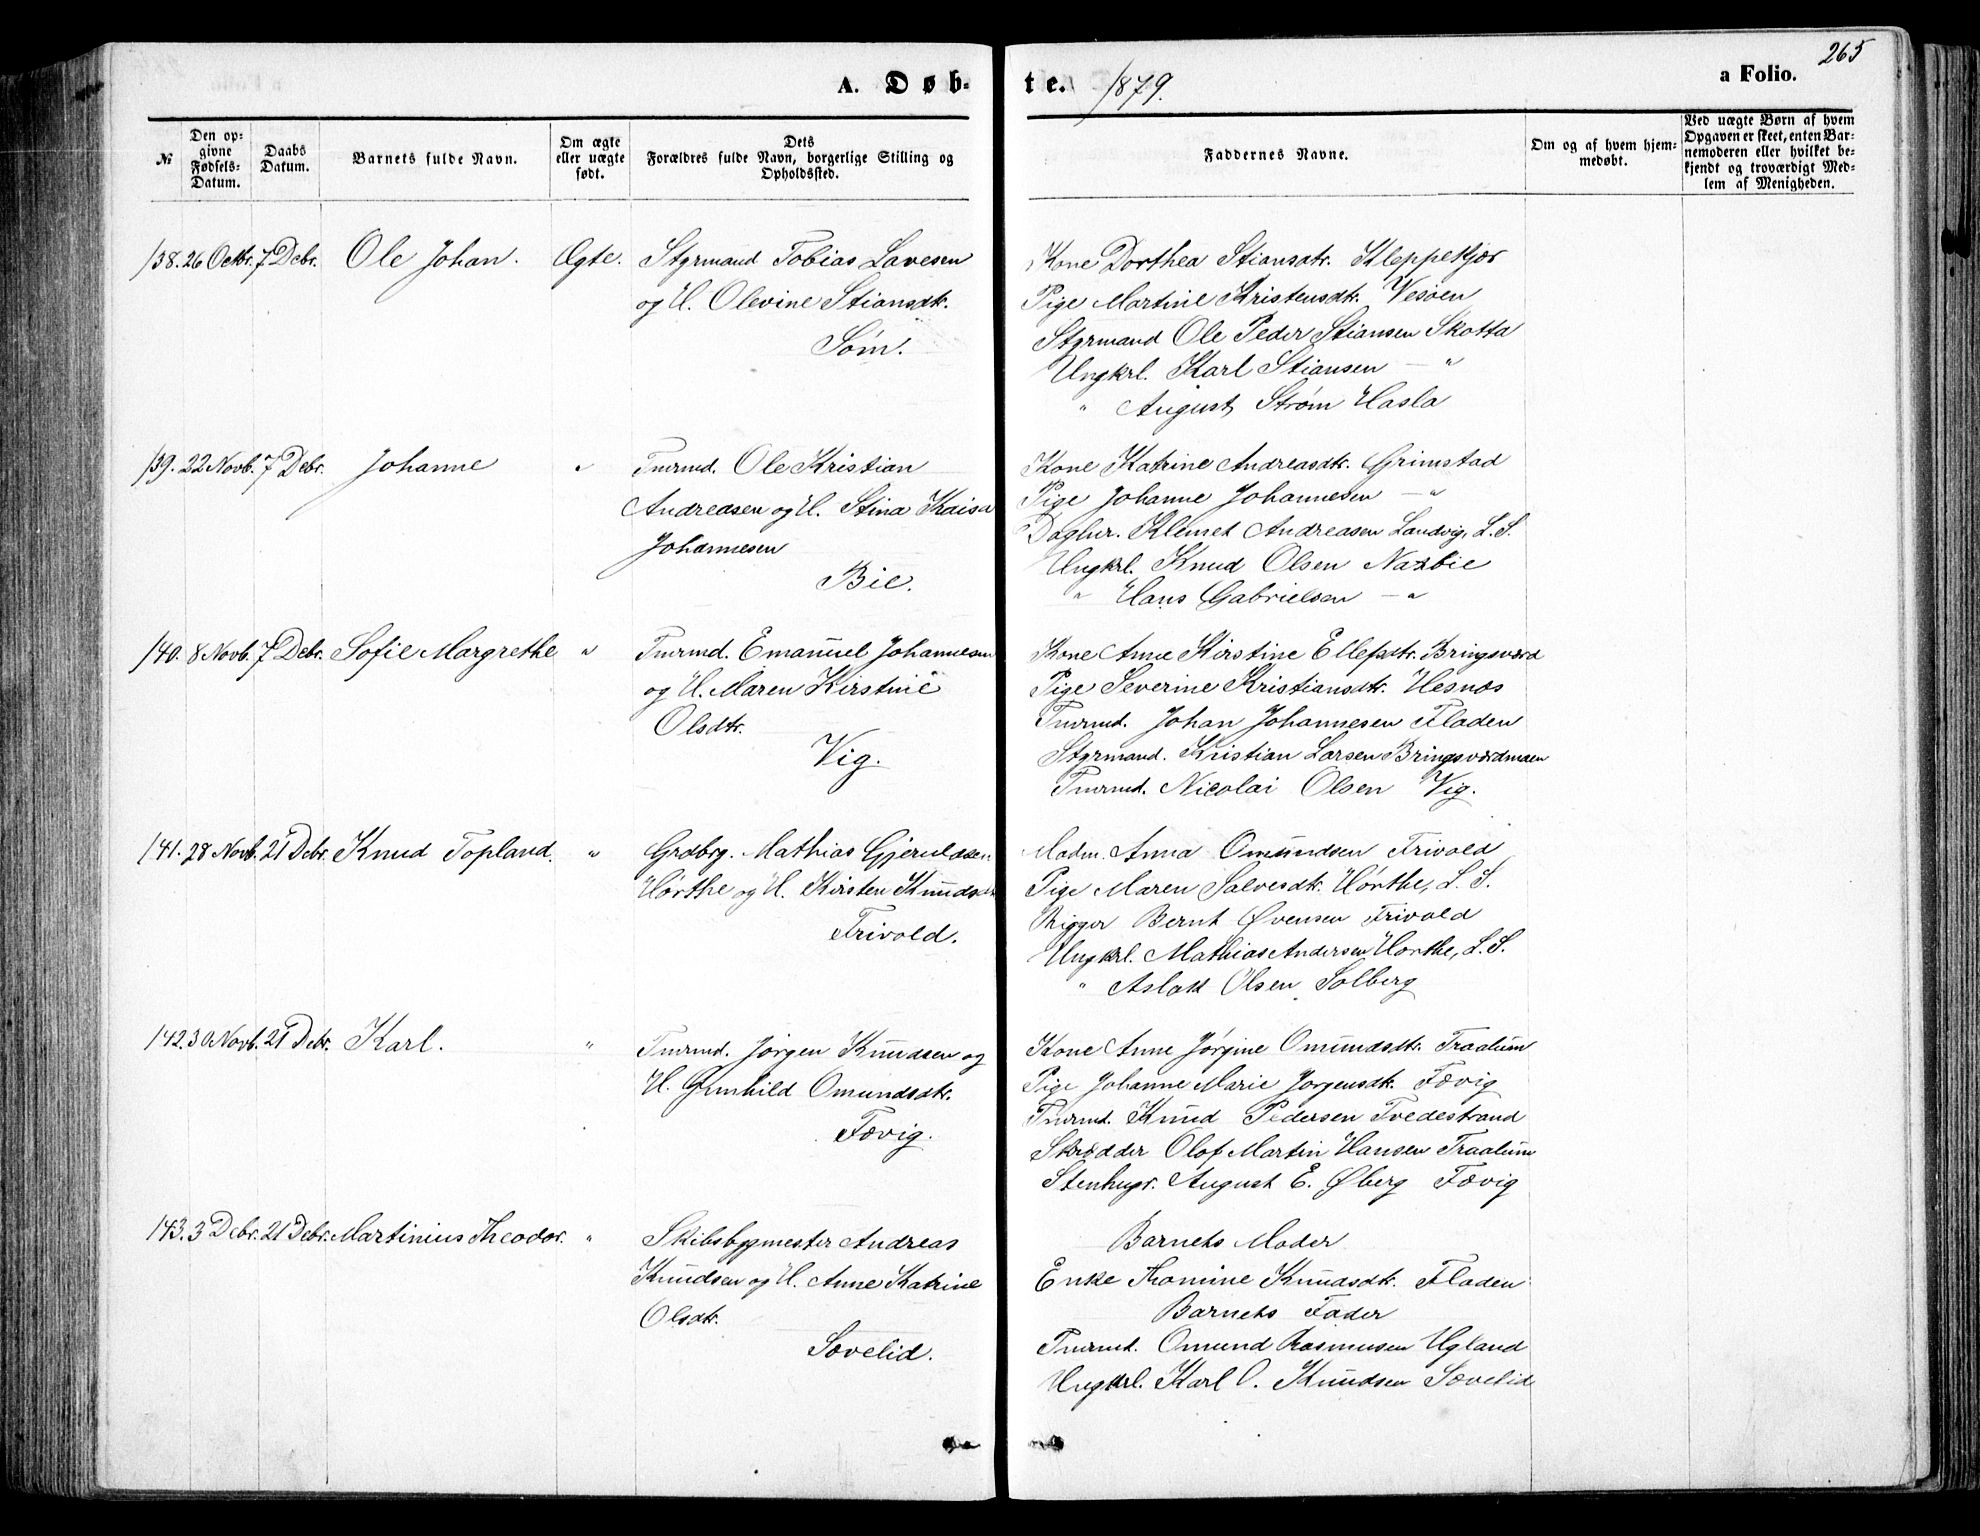 265
A. Døb-
te. 1879.
a Folio.
№
Den op-
givne
Fødsels-
Datum.
Daabs
Datum.
Barnets fulde Navn.
Om ægte
eller uægte
født.
Dets
Forældres fulde Navn, borgerlige Stilling og
Opholdssted.
Faddernes Navne.
Om og af hvem hjem-
medøbt.
Ved uægte Børn af hvem
Opgaven er skeet, enten Bar-
nemoderen eller hvilket be-
kjendt og troværdigt Med-
lem af Menigheden.
138. 26 Octbr. 7 Debr. Ole Johan. Ægte. Styrmand Tobias Lavesen
og H. Olevine Stiansdtr.
Søm.
Kone Dorthea Stiansdtr. Kleppekjær
Pige Martine Kristensdtr. Vesøen
Styrmand Ole Peder Stiansen Skotta
Ungkrl. Karl Stiansen — "
" August Strøm Hasla
139. 22 Novb. 7 Debr. Johanne " Tmrmd. Ole Kristian
Andreasen og H. Stina Kaisa
Johannesen
Bie.
Kone Katrine Andreasdtr. Grimstad
Pige Johanne Johannesen — "
Daglnr. Klemet Andreasen Landvig, L. S.
Ungkrl. Knud Olsen Narbie
" Hans Gabrielsen — "
140. 8 Novb. 7 Debr. Sofie Margrethe " Tmrmd. Emanuel Johannesen
og H. Maren Kirstine
Olsdtr.
Vig.
Kone Anne Kirstine Ellefsdtr. Bringsværd
Pige Severine Kristiansdtr. Hesnæs
Tmrmd. Johan Johannesen Fladen
Styrmand. Kristian Larsen Bringsværdmoen
Tmrmd. Nicolai Olsen Vig.
141. 28 Novb. 21 Debr. Knud Topland. " Grdbrg. Mathias Gjeruldsen
Hørthe og H. Kirsten Knudsdtr.
Frivold.
Madm. Anna Omundsen Frivold
Pige Maren Salvesdtr. Hørthe, L. S.
Rigger Bernt Øvensen Frivold
Ungkrl. Mathias Andersen Hørthe, L. S.
" Aslak Olsen Solberg
142. 30 Novb. 21 Debr. Karl. " Tmrmd. Jørgen Knudsen og
H. Gunhild Omundsdtr.
Fævig.
Kone Anne Jørgine Omundsdtr. Traalum
Pige Johanne Marie Jørgensdtr. Fævig
Tmrmd. Knud Pedersen Tvedestrand
Skrædder Olof Martin Hansen Traalum
Stenhugr. August E. Øberg Fævig
143. 3 Debr. 21 Debr. Martinius Theodor. " Skibsbygmester Andreas
Knudsen og H. Anne Katrine
Olsdtr.
Sævelid.
Barnets Moder
Enke Thomine Knudsdtr. Fladen
Barnets Fader
Tmrmd. Omund Rasmusen Ugland
Ungkrl. Karl O. Knudsen Sævelid